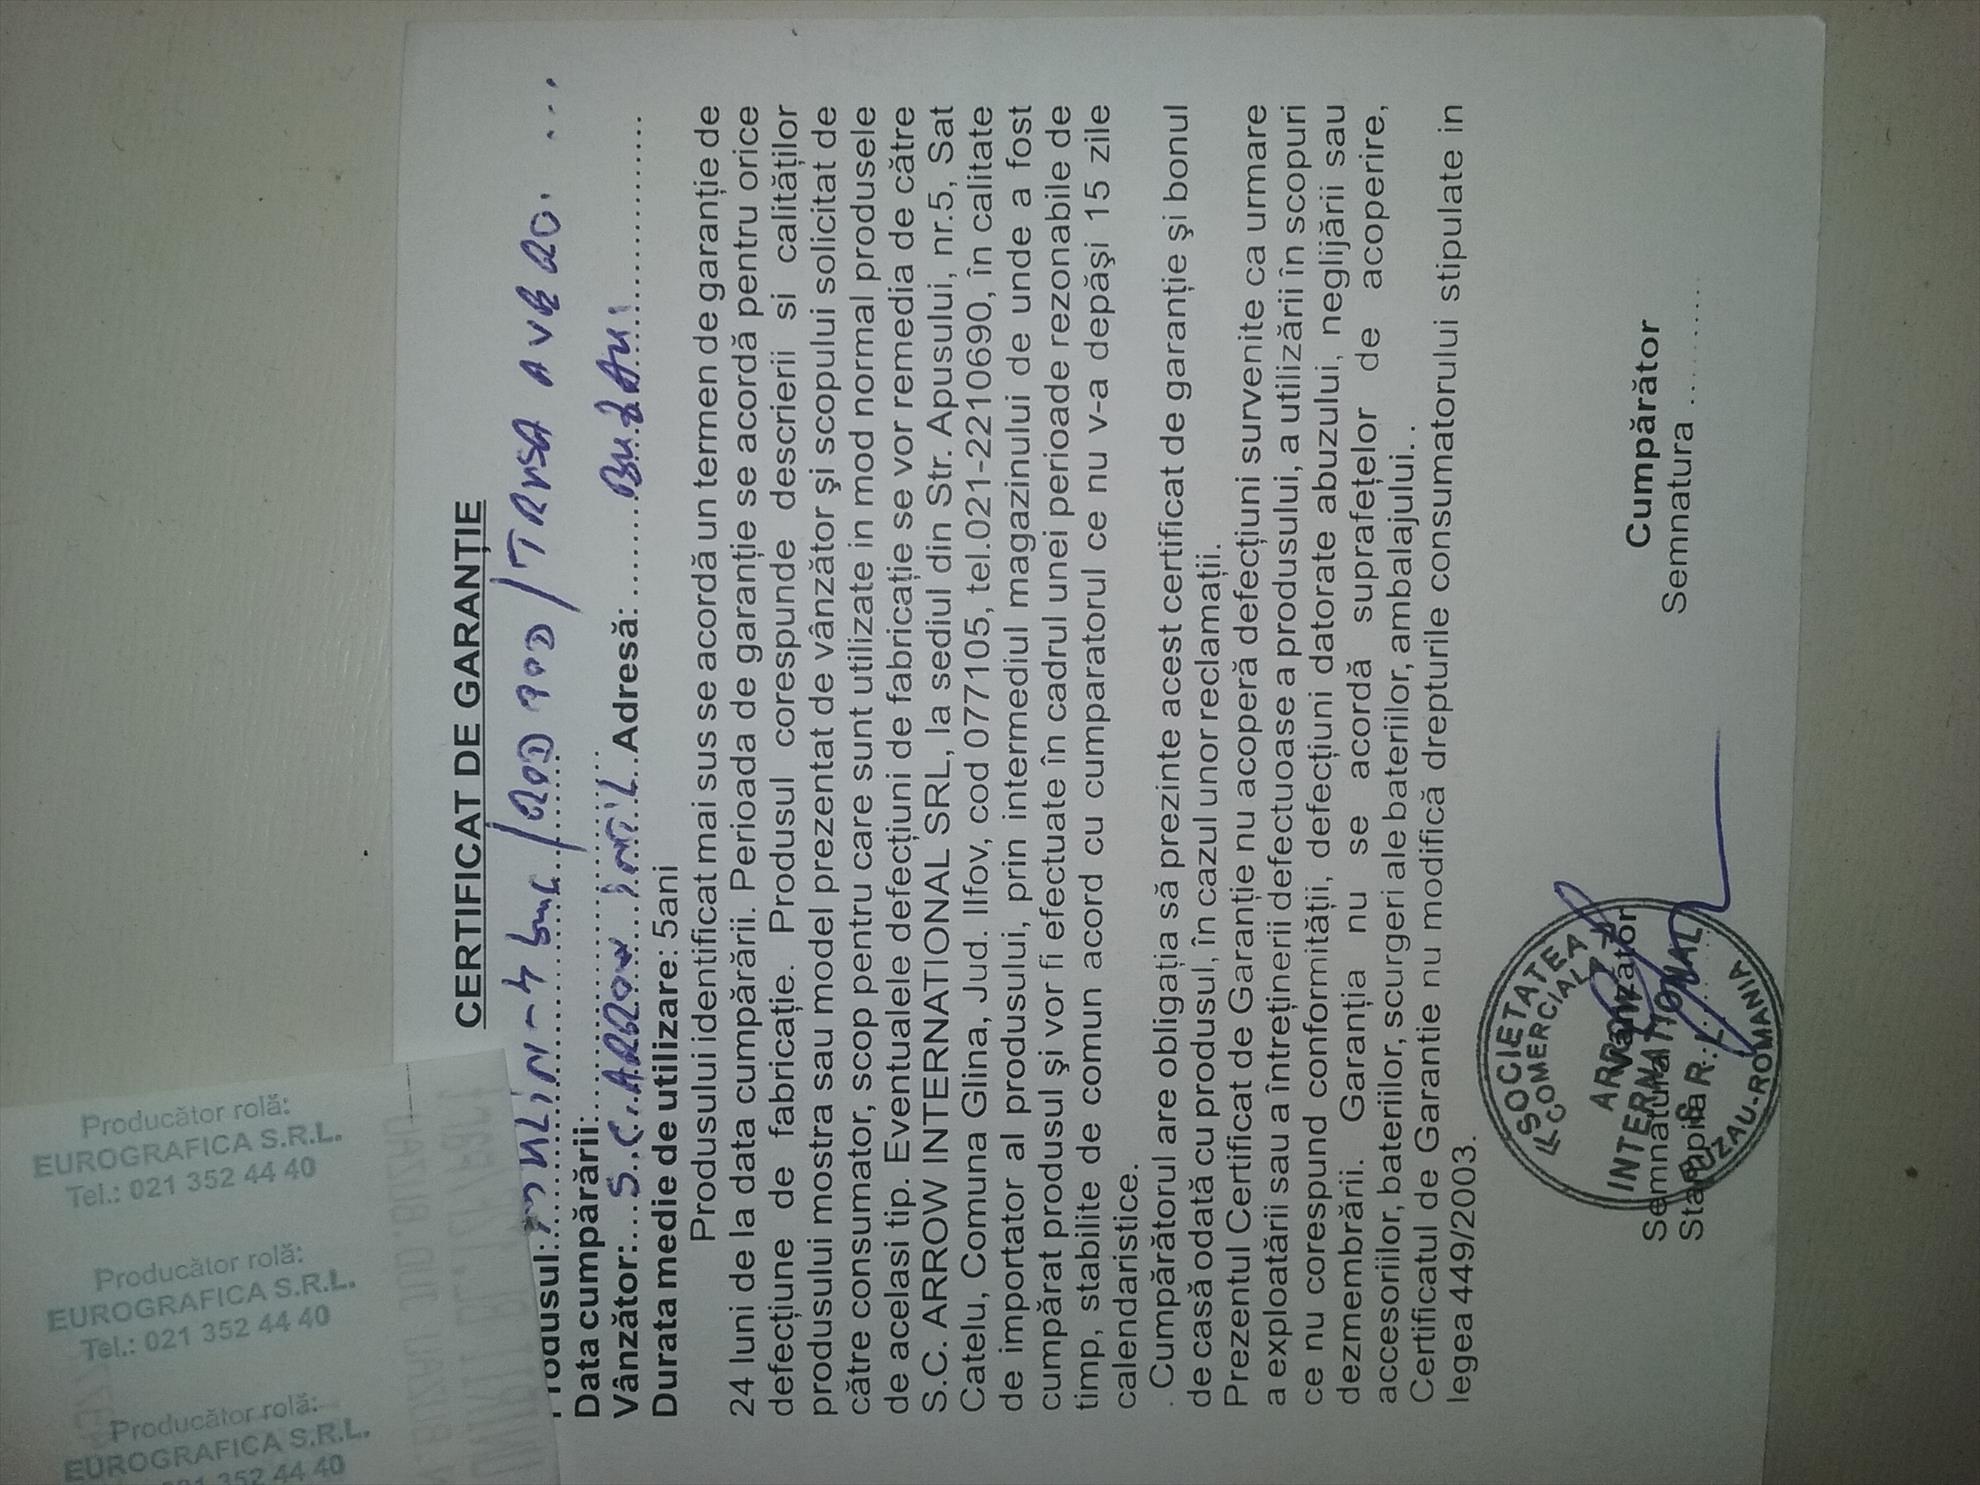 CERTIFICAT DE GARANȚIE
Produsul:
Data cumpărării:
Vânzător: S.C. ARROW INT'L Adresă: Buzău
Durata medie de utilizare: 5ani
Produsului identificat mai sus se acordă un termen de garanție de
24 luni de la data cumpărării. Perioada de garanție se acordă pentru orice
defecțiune de fabricație. Produsul corespunde descrierii si calităților
produsului mostra sau model prezentat de vânzător și scopului solicitat de
către consumator, scop pentru care sunt utilizate in mod normal produsele
de acelasi tip. Eventualele defecțiuni de fabricație se vor remedia de către
S.C. ARROW INTERNATIONAL SRL, la sediul din Str. Apusului, nr.5, Sat
Catelu, Comuna Glina, Jud. Ilfov, cod 077105, tel.021-2210690, în calitate
de importator al produsului, prin intermediul magazinului de unde a fost
cumpărat produsul și vor fi efectuate în cadrul unei perioade rezonabile de
timp, stabilite de comun acord cu cumparatorul ce nu v-a depăși 15 zile
calendaristice.
. Cumpărătorul are obligația să prezinte acest certificat de garanție și bonul
de casă odată cu produsul, în cazul unor reclamații.
Prezentul Certificat de Garanție nu acoperă defecțiuni survenite ca urmare
a exploatării sau a întreținerii defectuoase a produsului, a utilizării în scopuri
ce nu corespund conformității, defecțiuni datorate abuzului, neglijării sau
dezmembrării. Garanția nu se acordă suprafețelor de acoperire,
accesoriilor, bateriilor, scurgeri ale bateriilor, ambalajului. .
Certificatul de Garantie nu modifică drepturile consumatorului stipulate in
legea 449/2003.
Vânzător
Semnătura
Stampila
SOCIETATEA
COMERCIALĂ
ARROW
INTERNATIONAL
S.R.L.
BUZAU-ROMANIA
Cumpărător
Semnatura ..........
Producător rolă:
EUROGRAFICA S.R.L.
Tel.: 021 352 44 40
Producător rolă:
EUROGRAFICA S.R.L.
Tel.: 021 352 44 40
Producător rolă:
EUROGRAFICA S.R.L.
021 352 44 40